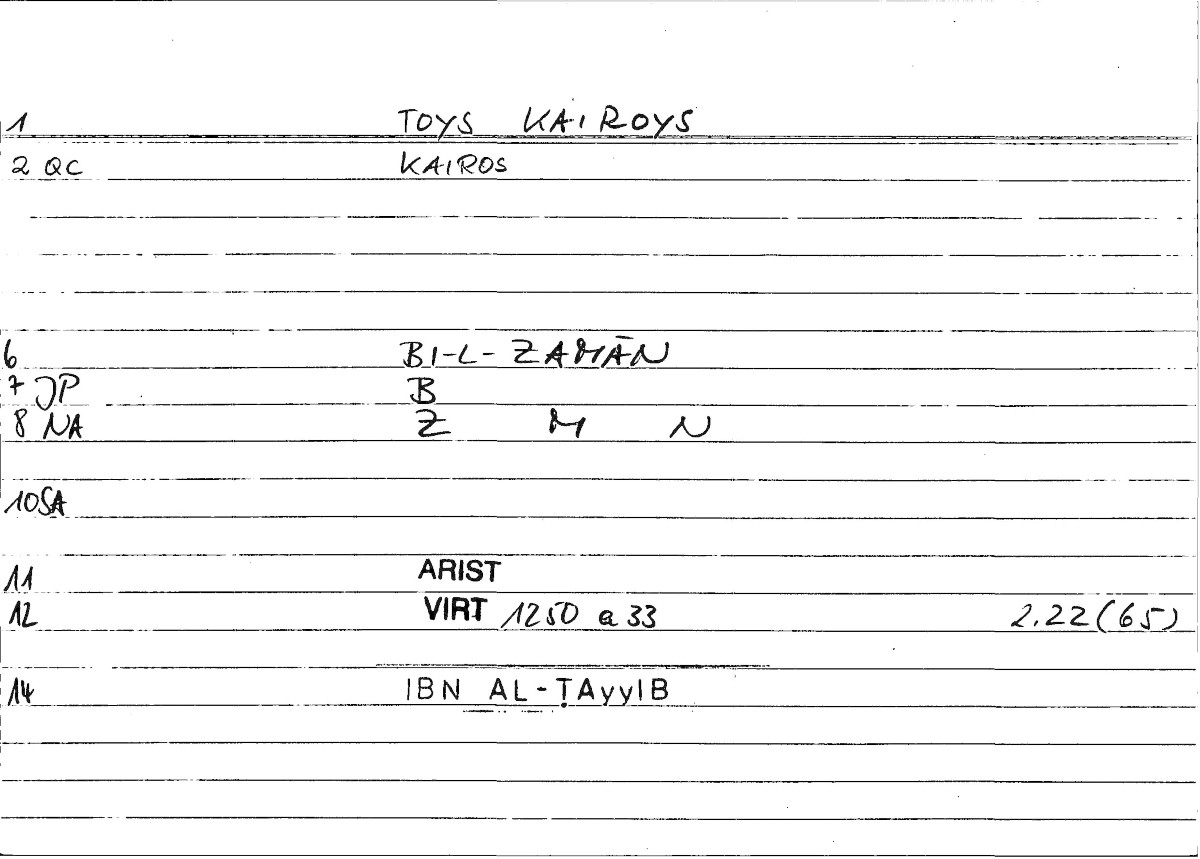 1 TOYS KAIROYS
2 QC KAIROS
6 BI-L-ZAMĀN
7 JP B
8 NA Z M N
10 SA
11 ARIST
12 VIRT 1250 a 33 2.22(65)
14 IBN AL-ṬAyyIB